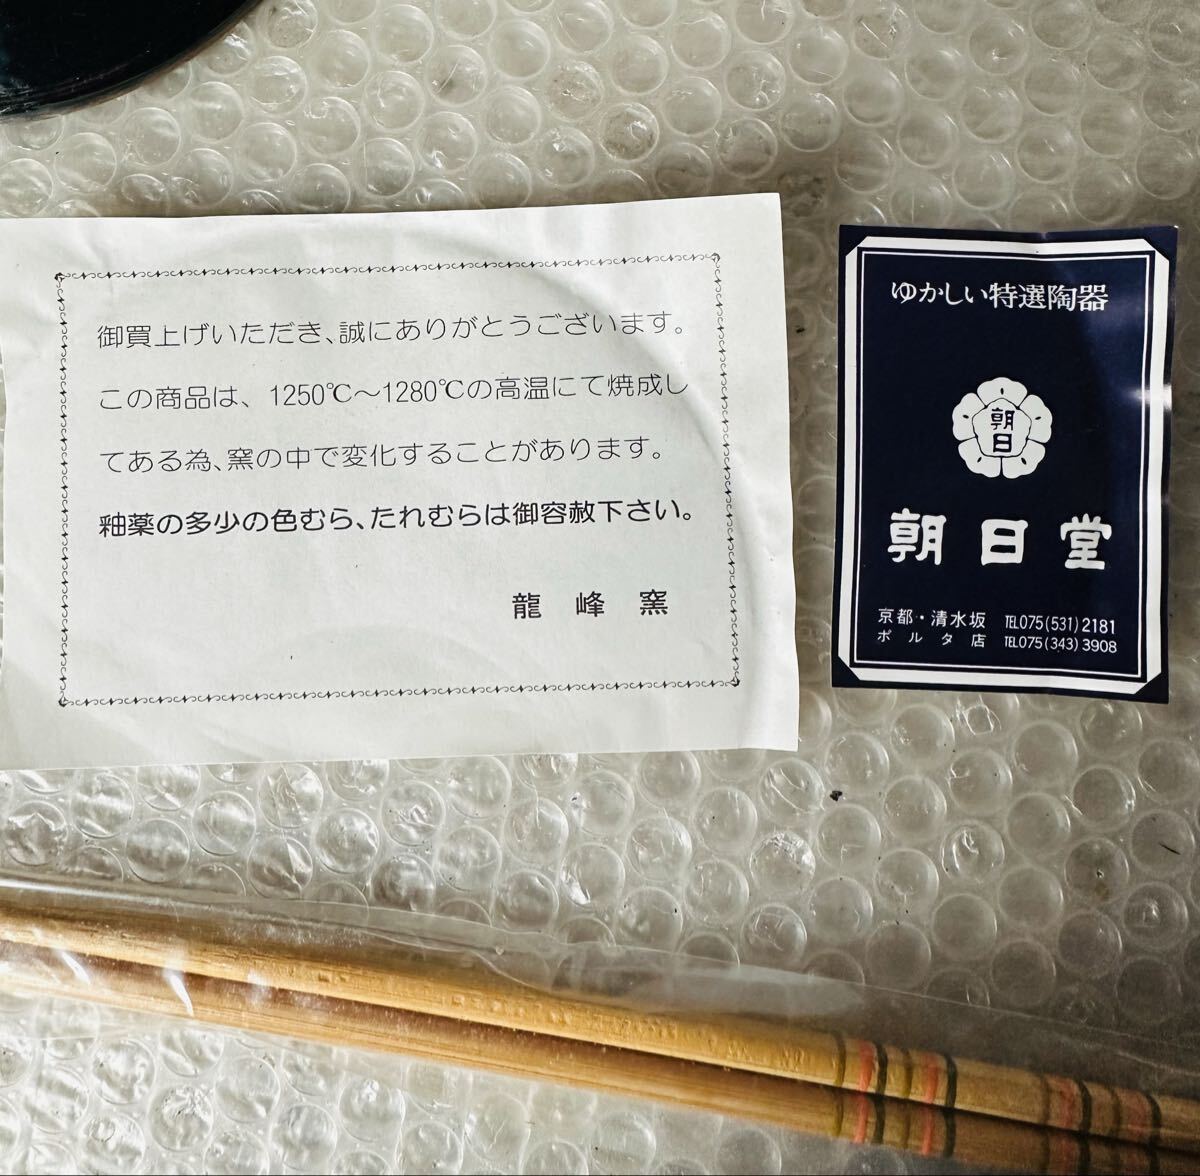 御買上げいただき、誠にありがとうございます。
この商品は、1250℃～1280℃の高温にて焼成し
てある為、窯の中で変化することがあります。
釉薬の多少の色むら、たれむらは御容赦下さい。
龍峰窯
ゆかしい特選陶器
朝日
朝日堂
京都・清水坂 TEL075(531)2181
ポルタ店 TEL075(343)3908